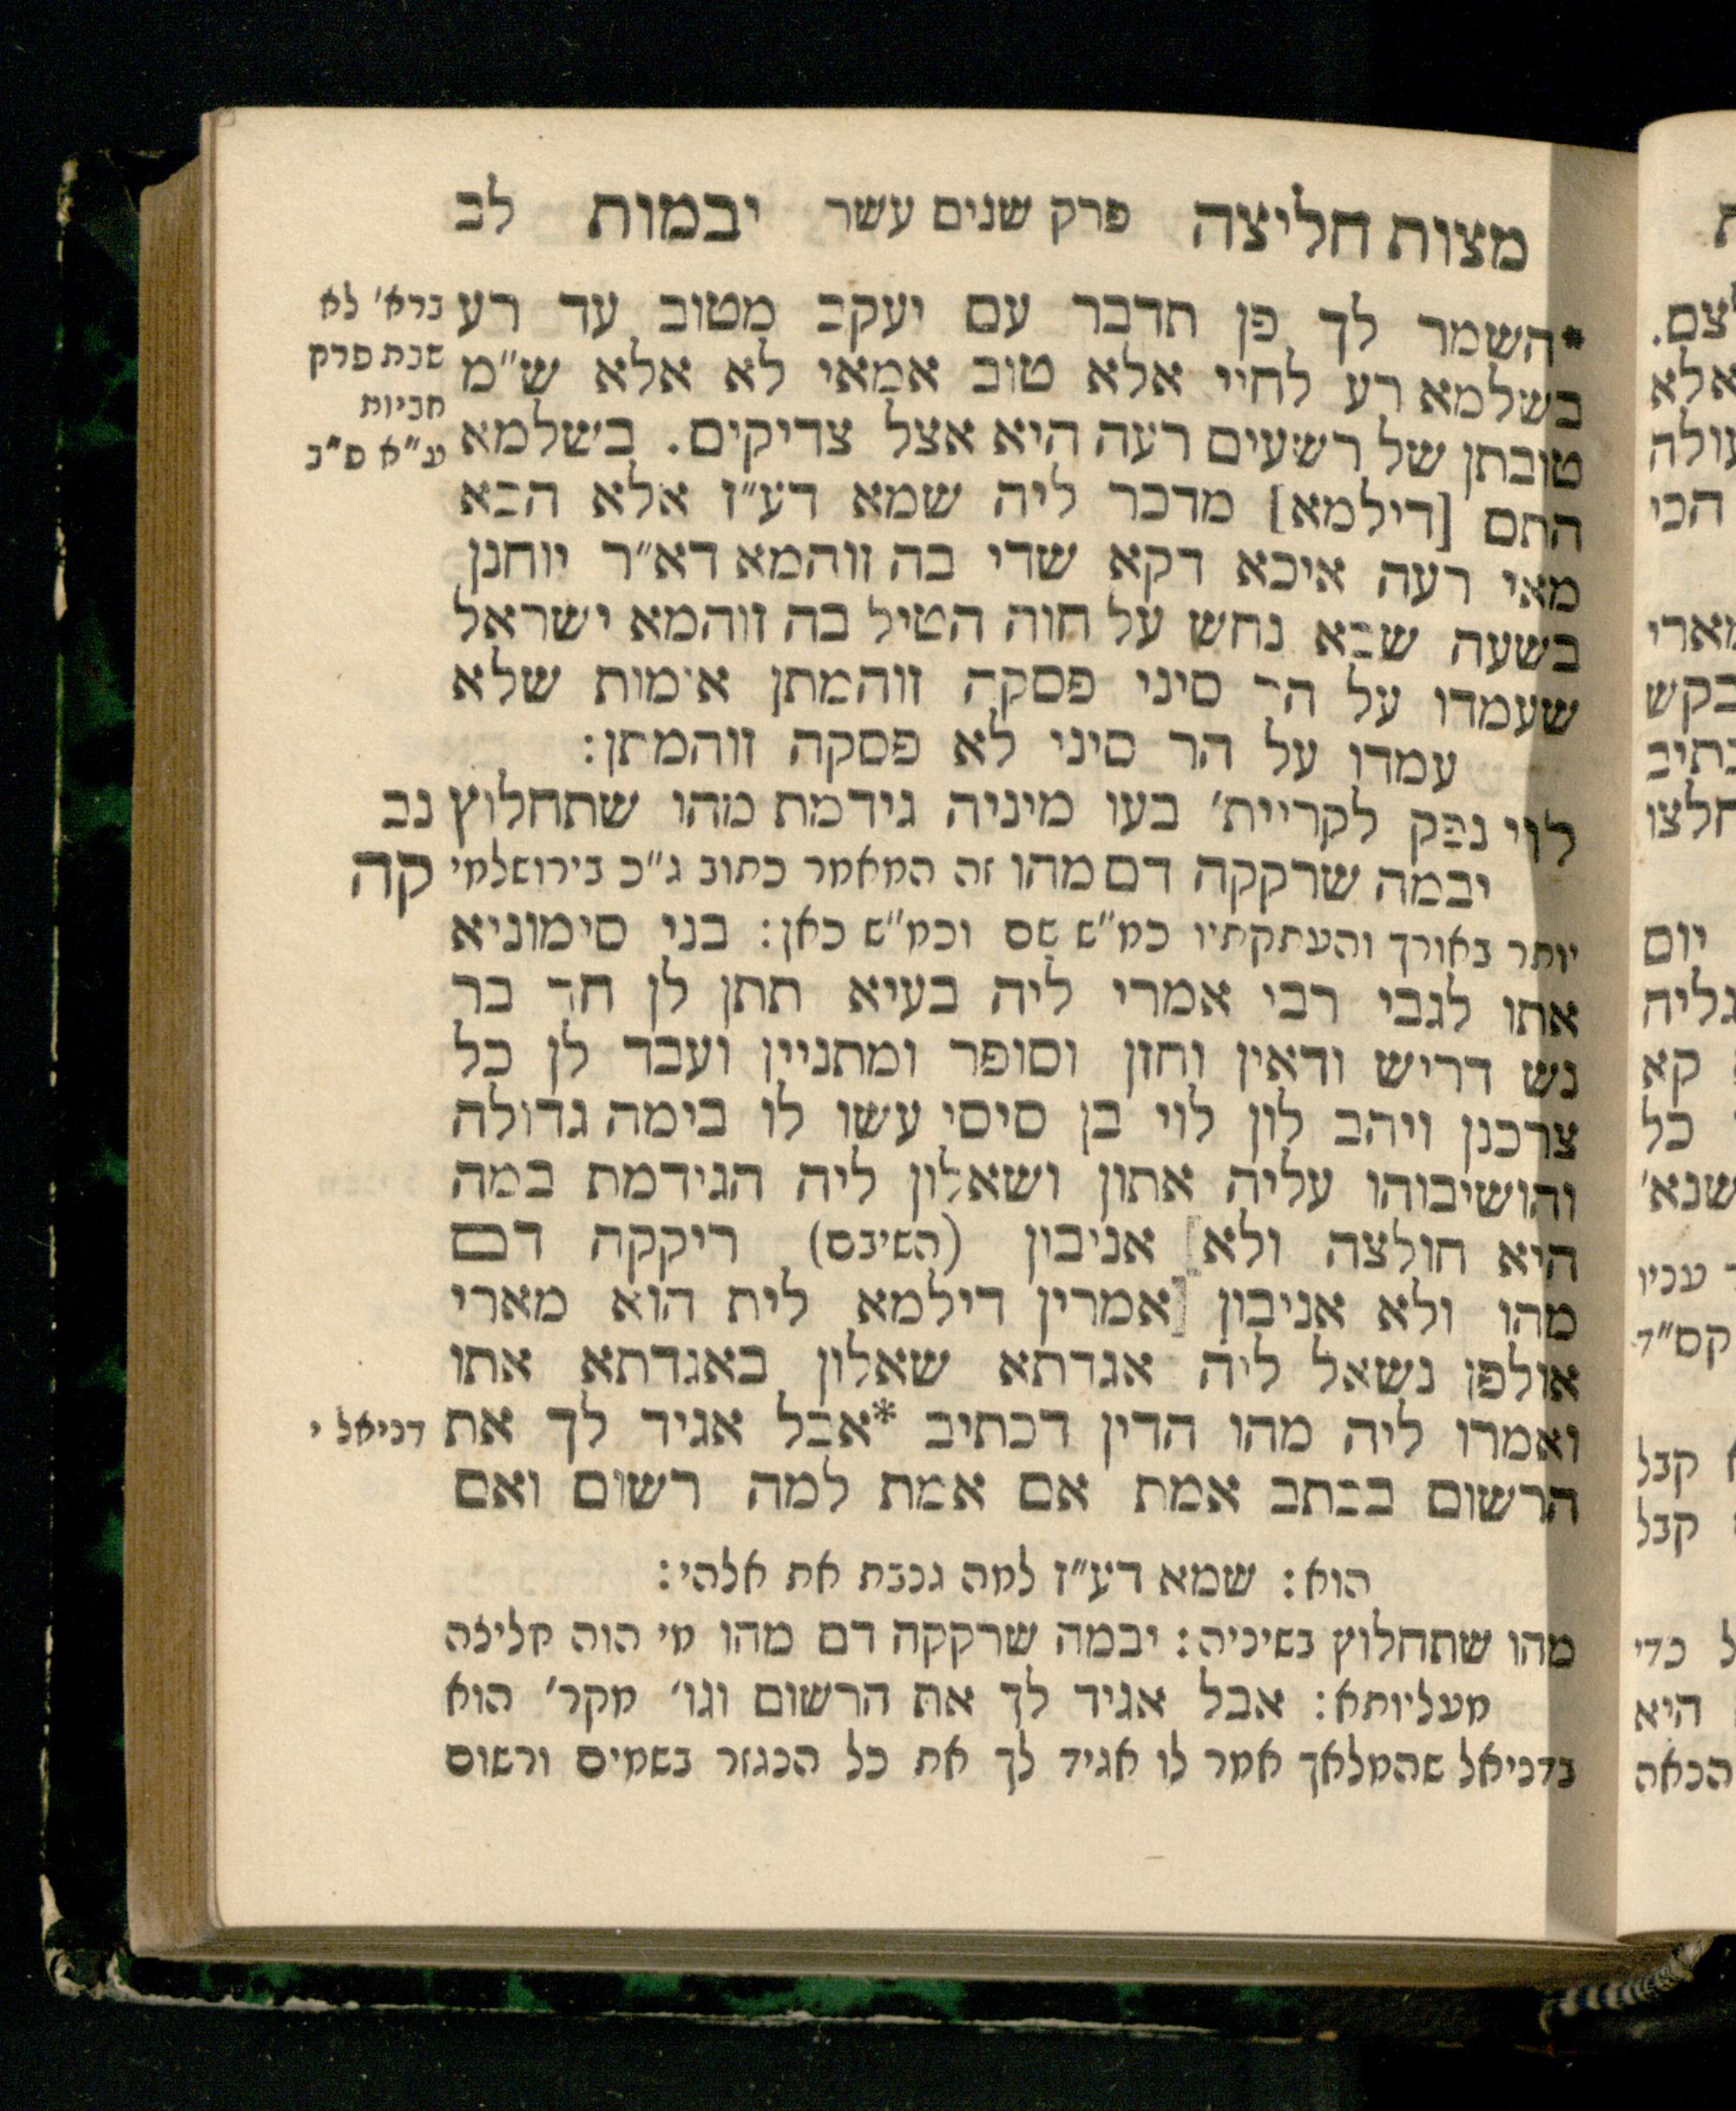 מצות חליצה פרק שנים עשר יבמות לב
*השמר לך פן תדבר עם יעקב מטוב עד רע
ברא' לא
בשלמא רע לחיי אלא טוב אמאי לא אלא ש"מ
שבת פרק
חביות
טובתן של רשעים רעה היא אצל צדיקים. בשלמא
ע"א ס"ב
התם [דילמא] מדכר ליה שמא דע"ז אלא הכא
מאי רעה איכא דקא שדי בה זוהמא דא"ר יוחנן
בשעה שבא נחש על חוה הטיל בה זוהמא ישראל
שעמדו על הר סיני פסקה זוהמתן אימות שלא
עמדו על הר סיני לא פסקה זוהמתן:
לוי נפק לקריית' בעו מיניה גידמת מהו שתחלוץ
נב
יבמה שרקקה דם מהו זה המאמר כתוב ג"כ בירושלמי
קה
יותר באורך והעתקתיו כמ"ש שם וכמ"ש כאן: בני סימוניא
אתו לגבי רבי אמרי ליה בעיא תתן לן חד בר
נש דריש ודאין וחזן וסופר ומתניין ועבד לן כל
צרכנן ויהב לון לוי בן סיסי עשו לו בימה גדולה
והושיבוהו עליה אתון ושאלון ליה הגידמת במה
היא חולצה ולא] אניבון (השיבם) ריקקה דם
מהו ולא אניבון [אמרין דילמא לית הוא מארי
אולפן נשאל ליה אגדתא שאלון באגדתא אתו
ואמרו ליה מהו הדין דכתיב *אבל אגיד לך את
דניאל י
הרשום בכתב אמת אם אמת למה רשום ואם
הוא: שמא דע"ז למה גנבת את אלהי:
מהו שתחלוץ בשיניה: יבמה שרקקה דם מהו מי הוה חליצה
מעליותא: אבל אגיד לך את הרשום וגו' מקר' הוא
בדניאל שהמלאך אמר לו אגיד לך את כל הנגזר בשמים ורשום
לצם.
אלא
עולה
הכי
מארי
בקש
כתיב
חלצו
יום
גליה
קא
כל
שנא'
עניו
קס"ד
קבל
קבל
כדי
היא
הנאה